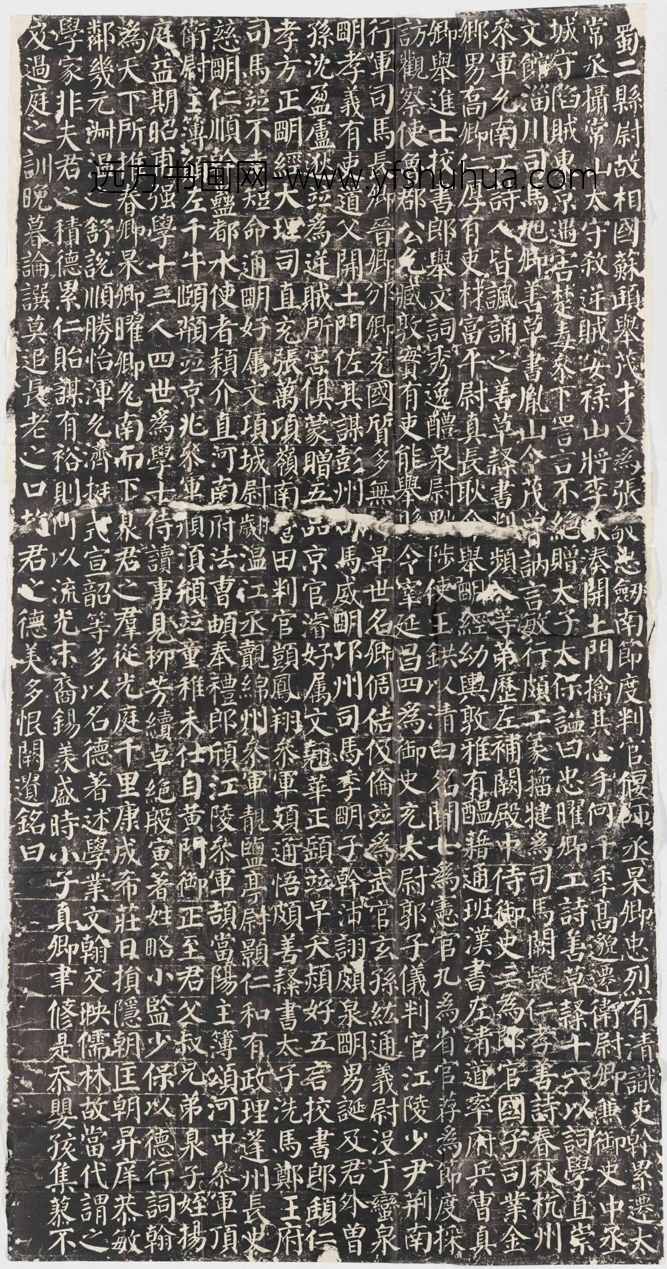 蜀二縣尉故相國蘇頲舉茂才又為張敬忠劒南節度判官偃師丞杲卿忠烈有清識吏幹累遷太
常丞攝常山太守殺逆賊安祿山將李欽湊開土門擒其心手何千年高邈遷衛尉卿兼御史中丞
城守陷賊東京遇害楚毒參下詈言不絕贈太子太保謚曰忠曜卿工詩善草隸十六以詞學直崇
文館淄川司馬旭卿善草書胤山令茂曾訥言敏行頗工篆籀犍為司馬闕疑仁孝善詩春秋杭州
參軍允南工詩人皆諷誦之善草隸書判頻入等第歷左補闕殿中侍御史三為郎官國子司業金
鄉男喬卿仁厚有吏材富平尉真長耿介舉明經幼輿敦雅有醞藉通班漢書左清道率府兵曹真
卿舉進士校書郎舉文詞秀逸醴泉尉黜陟使王鉷以清白名聞七為憲官九為省官荐為節度採
訪觀察使魯郡公允臧敦實有吏能舉縣令宰延昌四為御史充太尉郭子儀判官江陵少尹荊南
行軍司馬長卿晉卿邠卿充國質多無祿早世名卿倜佶伋倫並為武官玄孫紘通義尉沒于蠻泉
明孝義有吏道父開土門佐其謀彭州司馬威明邛州司馬季明子幹沛詡頗泉明男誕及君外曾
孫沈盈盧逖並為逆賊所害俱蒙贈五品京官濬好屬文翹華正頤並早夭熲好五言校書郎頲仁
孝方正明經大理司直充張萬頃嶺南營田判官顗鳳翔參軍頍通悟頗善隸書太子洗馬鄭王府
司馬並不幸短命通明好屬文項城尉翽溫江丞覿綿州參軍靚鹽亭尉顥仁和有政理蓬州長史
慈明仁順幹蠱都水使者穎介直河南府法曹頔奉禮郎頎江陵參軍頡當陽主簿頌河中參軍頂
衛尉主簿願左千牛頤頫並京兆參軍頯須頩並童稚未仕自黃門御正至君父叔兄弟泉子姪揚
庭益期昭甫強學十三人四世為學士侍讀事見柳芳續卓絕殷寅著姓略小監少保以德行詞翰
為天下所推春卿杲卿曜卿允南而下泉君之羣從光庭千里康成希莊日損隱朝匡朝昇庠恭敏
鄰幾元淑溫之舒說順勝怡渾允濟挺式宣韶等多以名德著述學業文翰交映儒林故當代謂之
學家非夫君之積德累仁貽謀有裕則何以流光末裔錫羨盛時小子真卿聿修是忝嬰孩集蓼不
及過庭之訓晚暮論譔莫追長老之口故君之德美多恨闕遺銘曰
远方书画网-www.yfshuhua.com